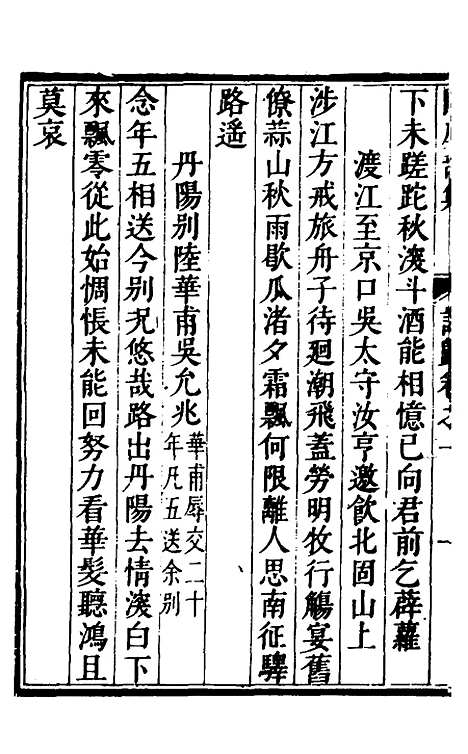 下未蹉跎秋深斗酒能相憶已向君前乞薜蘿
渡江至京口吳太守汝亨邀飲北固山上
涉江方戒旅舟子待廻潮飛蓋勞明牧行觴宴舊
僚蒜山秋雨歇瓜渚夕霜飄何限離人思南征驛
路遙
丹陽别陸華甫吳允兆華甫辱交二十年凡五送余别
念年五相送今别况悠哉路出丹陽去情深白下
來飄零從此始惆悵未能回努力看華髮聽鴻且
莫哀